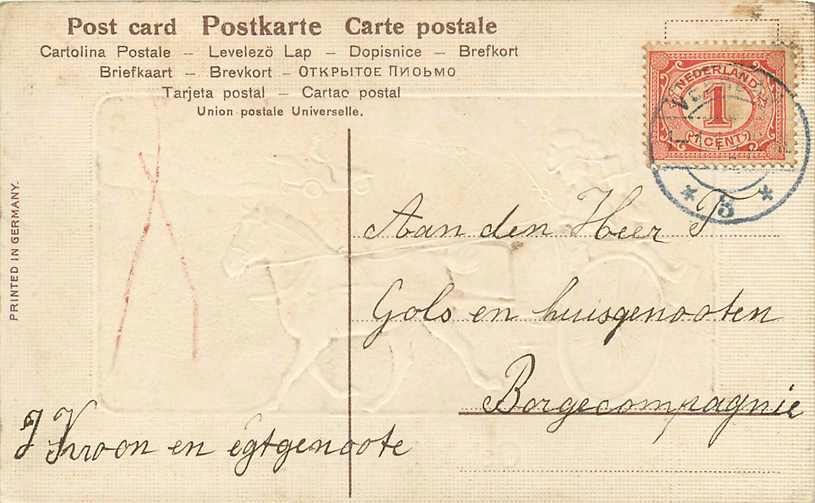 Post card Postkarte Carte postale
Cartolina Postale – Levelező Lap – Dopisnice – Brefkort
Briefkaart – Brevkort – ОТКРЫТОЕ ПИОЬМО
Tarjeta postal – Cartao postal
Union postale Universelle.
NEDERLAND
1
1 CENT
5
PRINTED IN GERMANY.
Aan den Heer T
Gols en huisgenooten
Borgecompagnie
J Kroon en egtgenoote